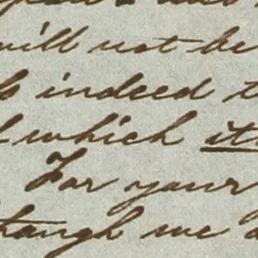 will not be
indeed
which it
For your
though we